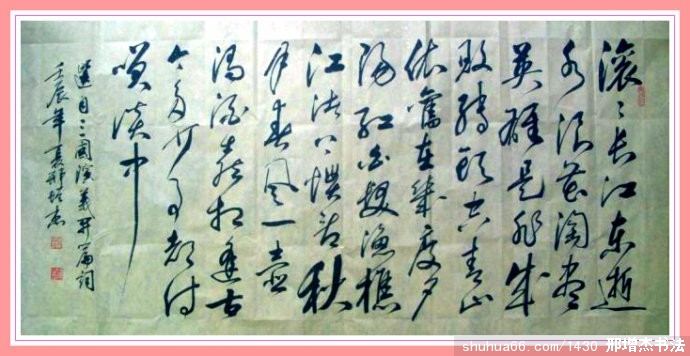 滚〻长江东逝
水浪花淘尽
英雄是非成
败转头空青山
依舊在幾度夕
阳红白发渔樵
江渚上惯看秋
月春风一壶
浊酒喜相逢古
今多少事都付
笑谈中
选自三國演義开篇词
壬辰年夏邢增杰
shuhua66.com/1430 邢增杰书法